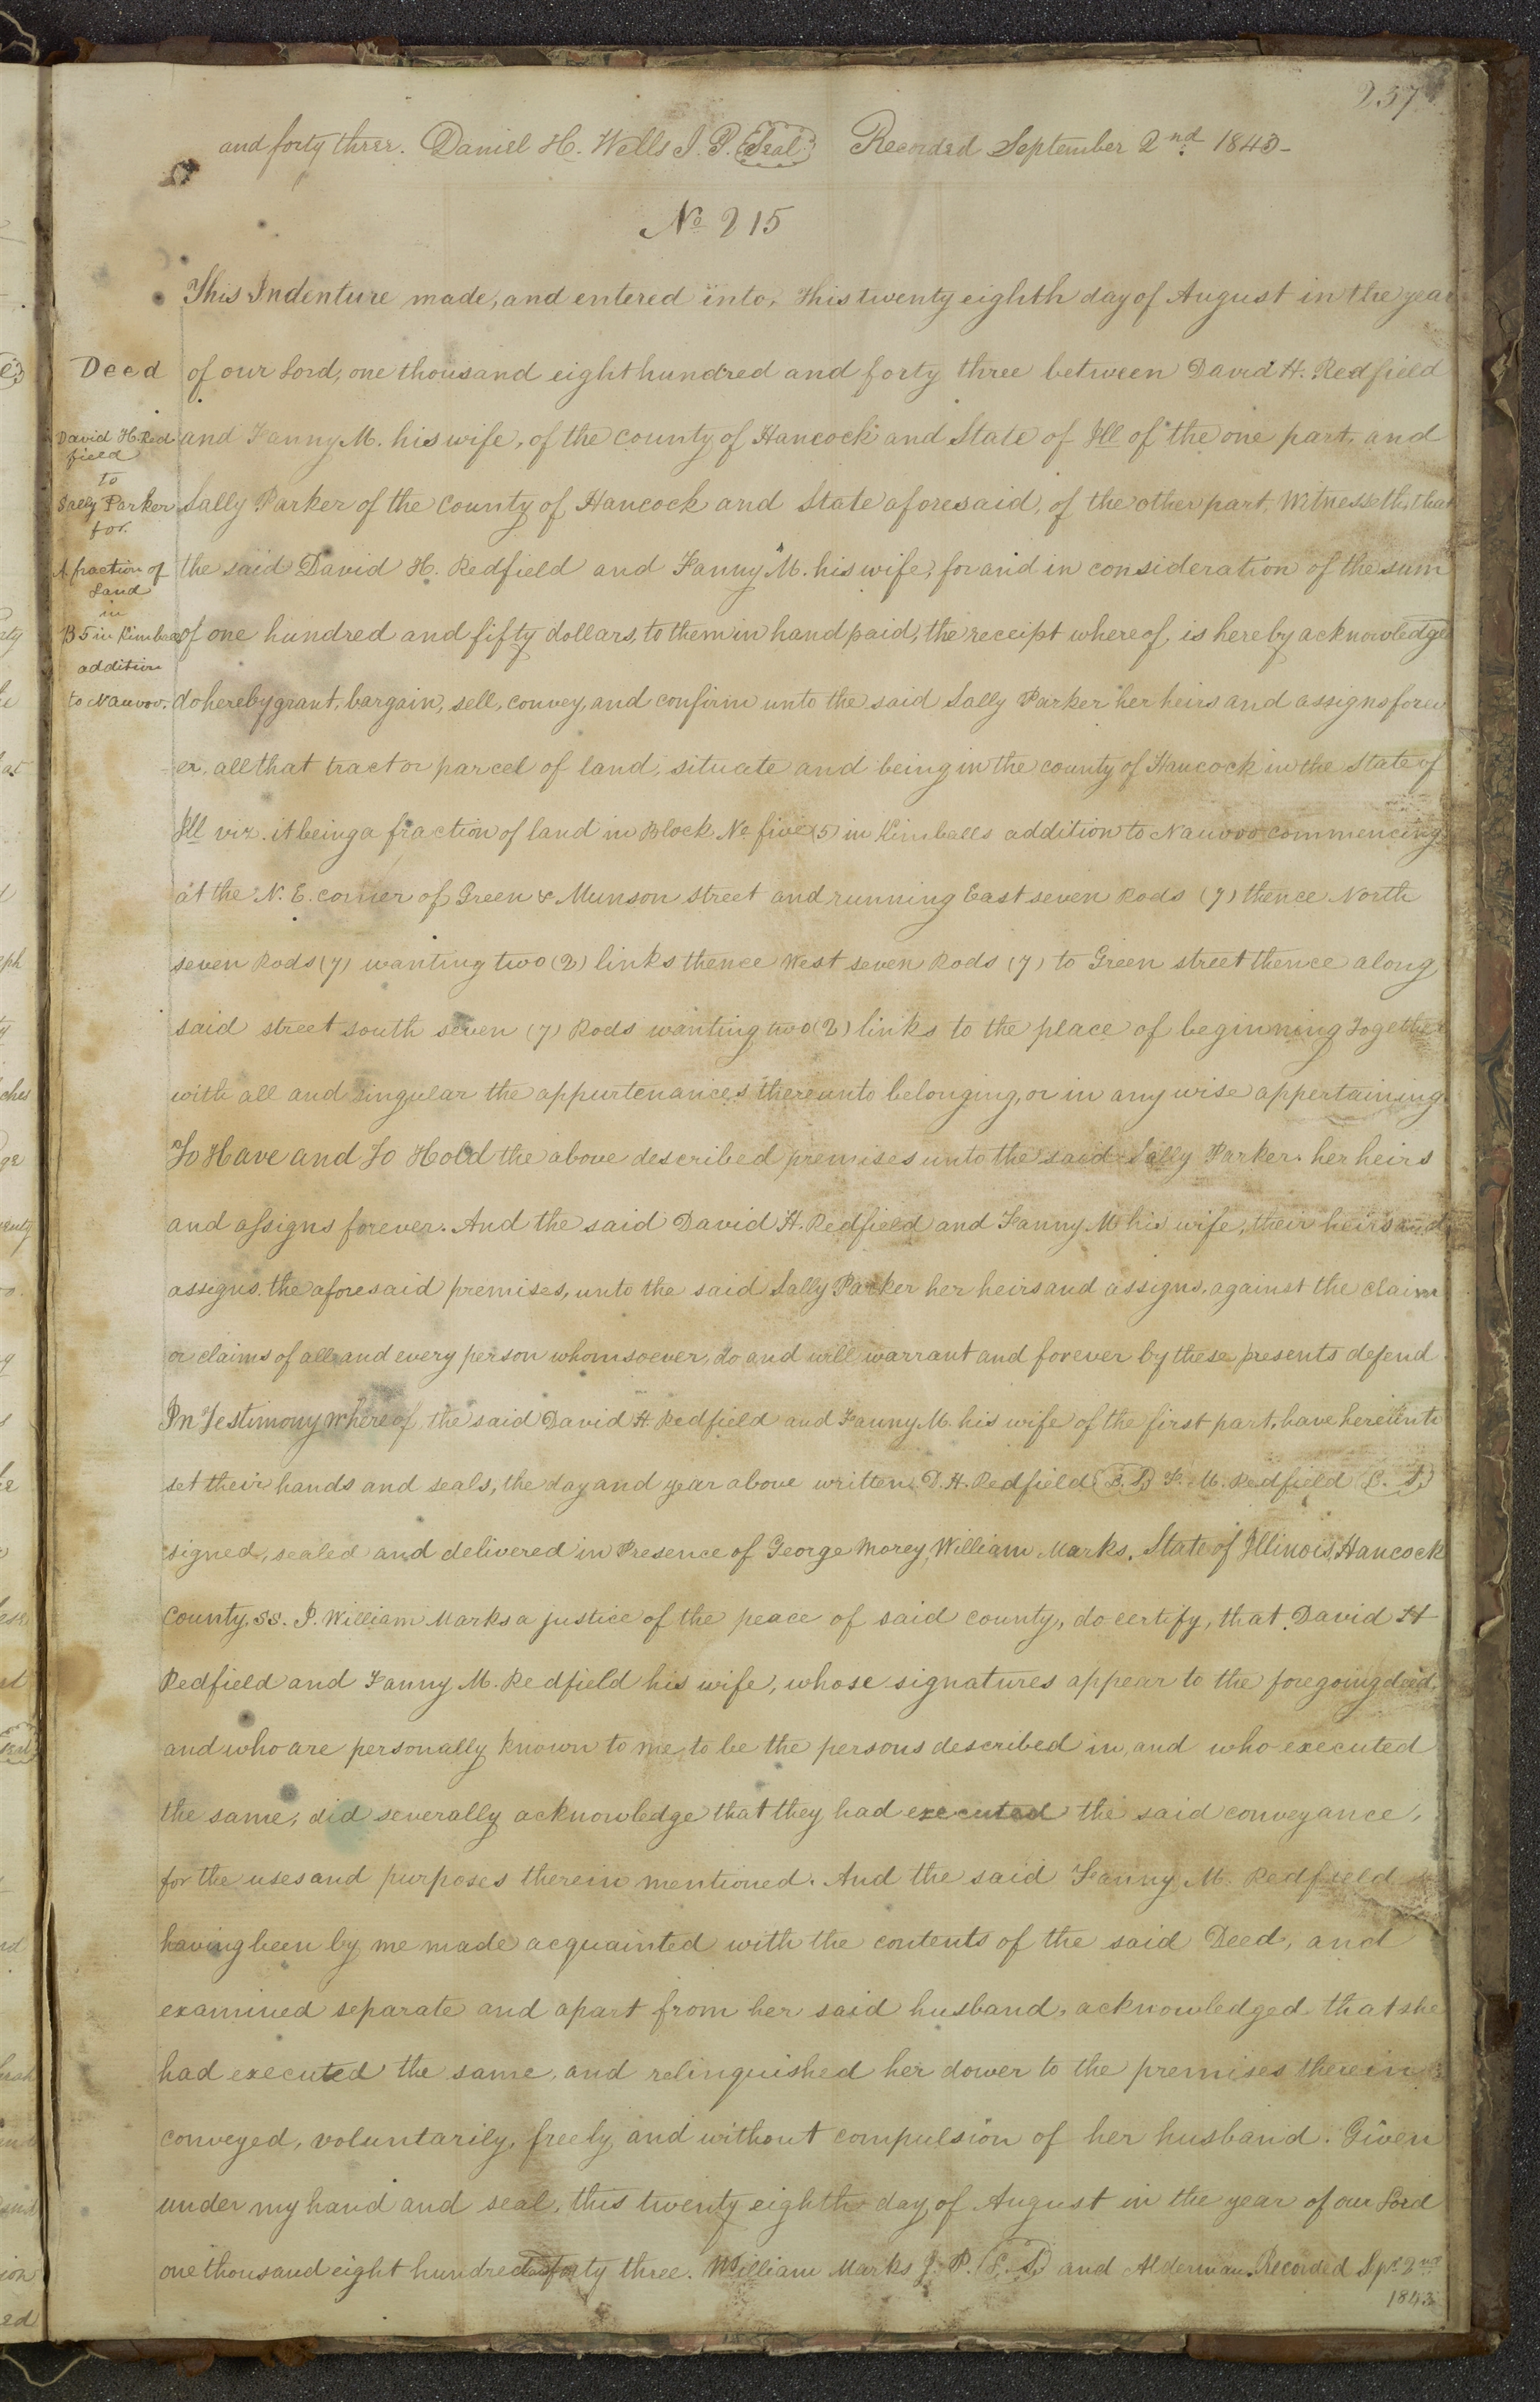 257
and forty three. Daniel H. Wells J. P. (Seal) Recorded September 2nd 1843-
No 215
This Indenture made, and entered into, this twenty eighth day of August in the year
Deed
of our Lord, one thousand eight hundred and forty three between David H. Redfield
David H. Red
field
to
Sally Parker
for.
A fraction of
Land
in
B 5 in Kimbal
addition
to Nauvoo.
and Fanny M. his wife, of the county of Hancock and State of Ill of the one part, and
Sally Parker of the County of Hancock and State aforesaid, of the other part, Witnesseth, that
the said David H. Redfield and Fanny M. his wife, for and in consideration of the sum
of one hundred and fifty dollars, to them in hand paid, the receipt whereof, is hereby acknowledge
do hereby grant, bargain, sell, convey, and confirm unto the said Sally Parker her heirs and assigns forev
er, all that tract or parcel of land, situate and being in the county of Hancock in the State of
Ill viz. it being a fraction of land in Block No five (5) in Kimballs addition to Nauvoo commencing
at the N. E. corner of Green & Munson street and running East seven Rods (7) thence North
seven Rods (7) wanting two (2) links thence West seven Rods (7) to Green street thence along
said street south seven (7) Rods wanting two (2) links to the place of beginning Together
with all and singular the appurtenances thereunto belonging, or in any wise appertaining.
To Have and To Hold the above described premises unto the said Sally Parker. her heirs
and assigns forever. And the said David H. Redfield and Fanny M his wife, their heirs and
assigns. the aforesaid premises, unto the said Sally Parker her heirs and assigns, against the claim
or claims of all and every person whomsoever, do and will warrant and forever by these presents defend
In Testimony Whereof, the said David H. Redfield and Fanny M. his wife of the first part, have hereunto
set their hands and seals, the day and year above written. D. H. Redfield (L. S.) F. M. Redfield (L. S.)
signed, sealed and delivered in Presence of George Morey, William Marks. State of Illinois, Hancock
County, ss. I. William Marks a justice of the peace of said county, do certify, that David H
Redfield and Fanny M. Redfield his wife, whose signatures appear to the foregoing deed,
and who are personally known to me, to be the persons described in, and who executed
the same, did severally acknowledge that they had executed the said conveyance,
for the uses and purposes therein mentioned. And the said Fanny M. Redfield
having been by me made acquainted with the contents of the said Deed, and
examined separate and apart from her said husband, acknowledged that she
had executed the same, and relinquished her dower to the premises therein
conveyed, voluntarily, freely, and without compulsion of her husband. Given
under my hand and seal, this twenty eighth day of August in the year of our Lord
one thousand eight hundred and forty three. William Marks J. P. (L. S.) and Alderman. Recorded Spr. 2nd
1843